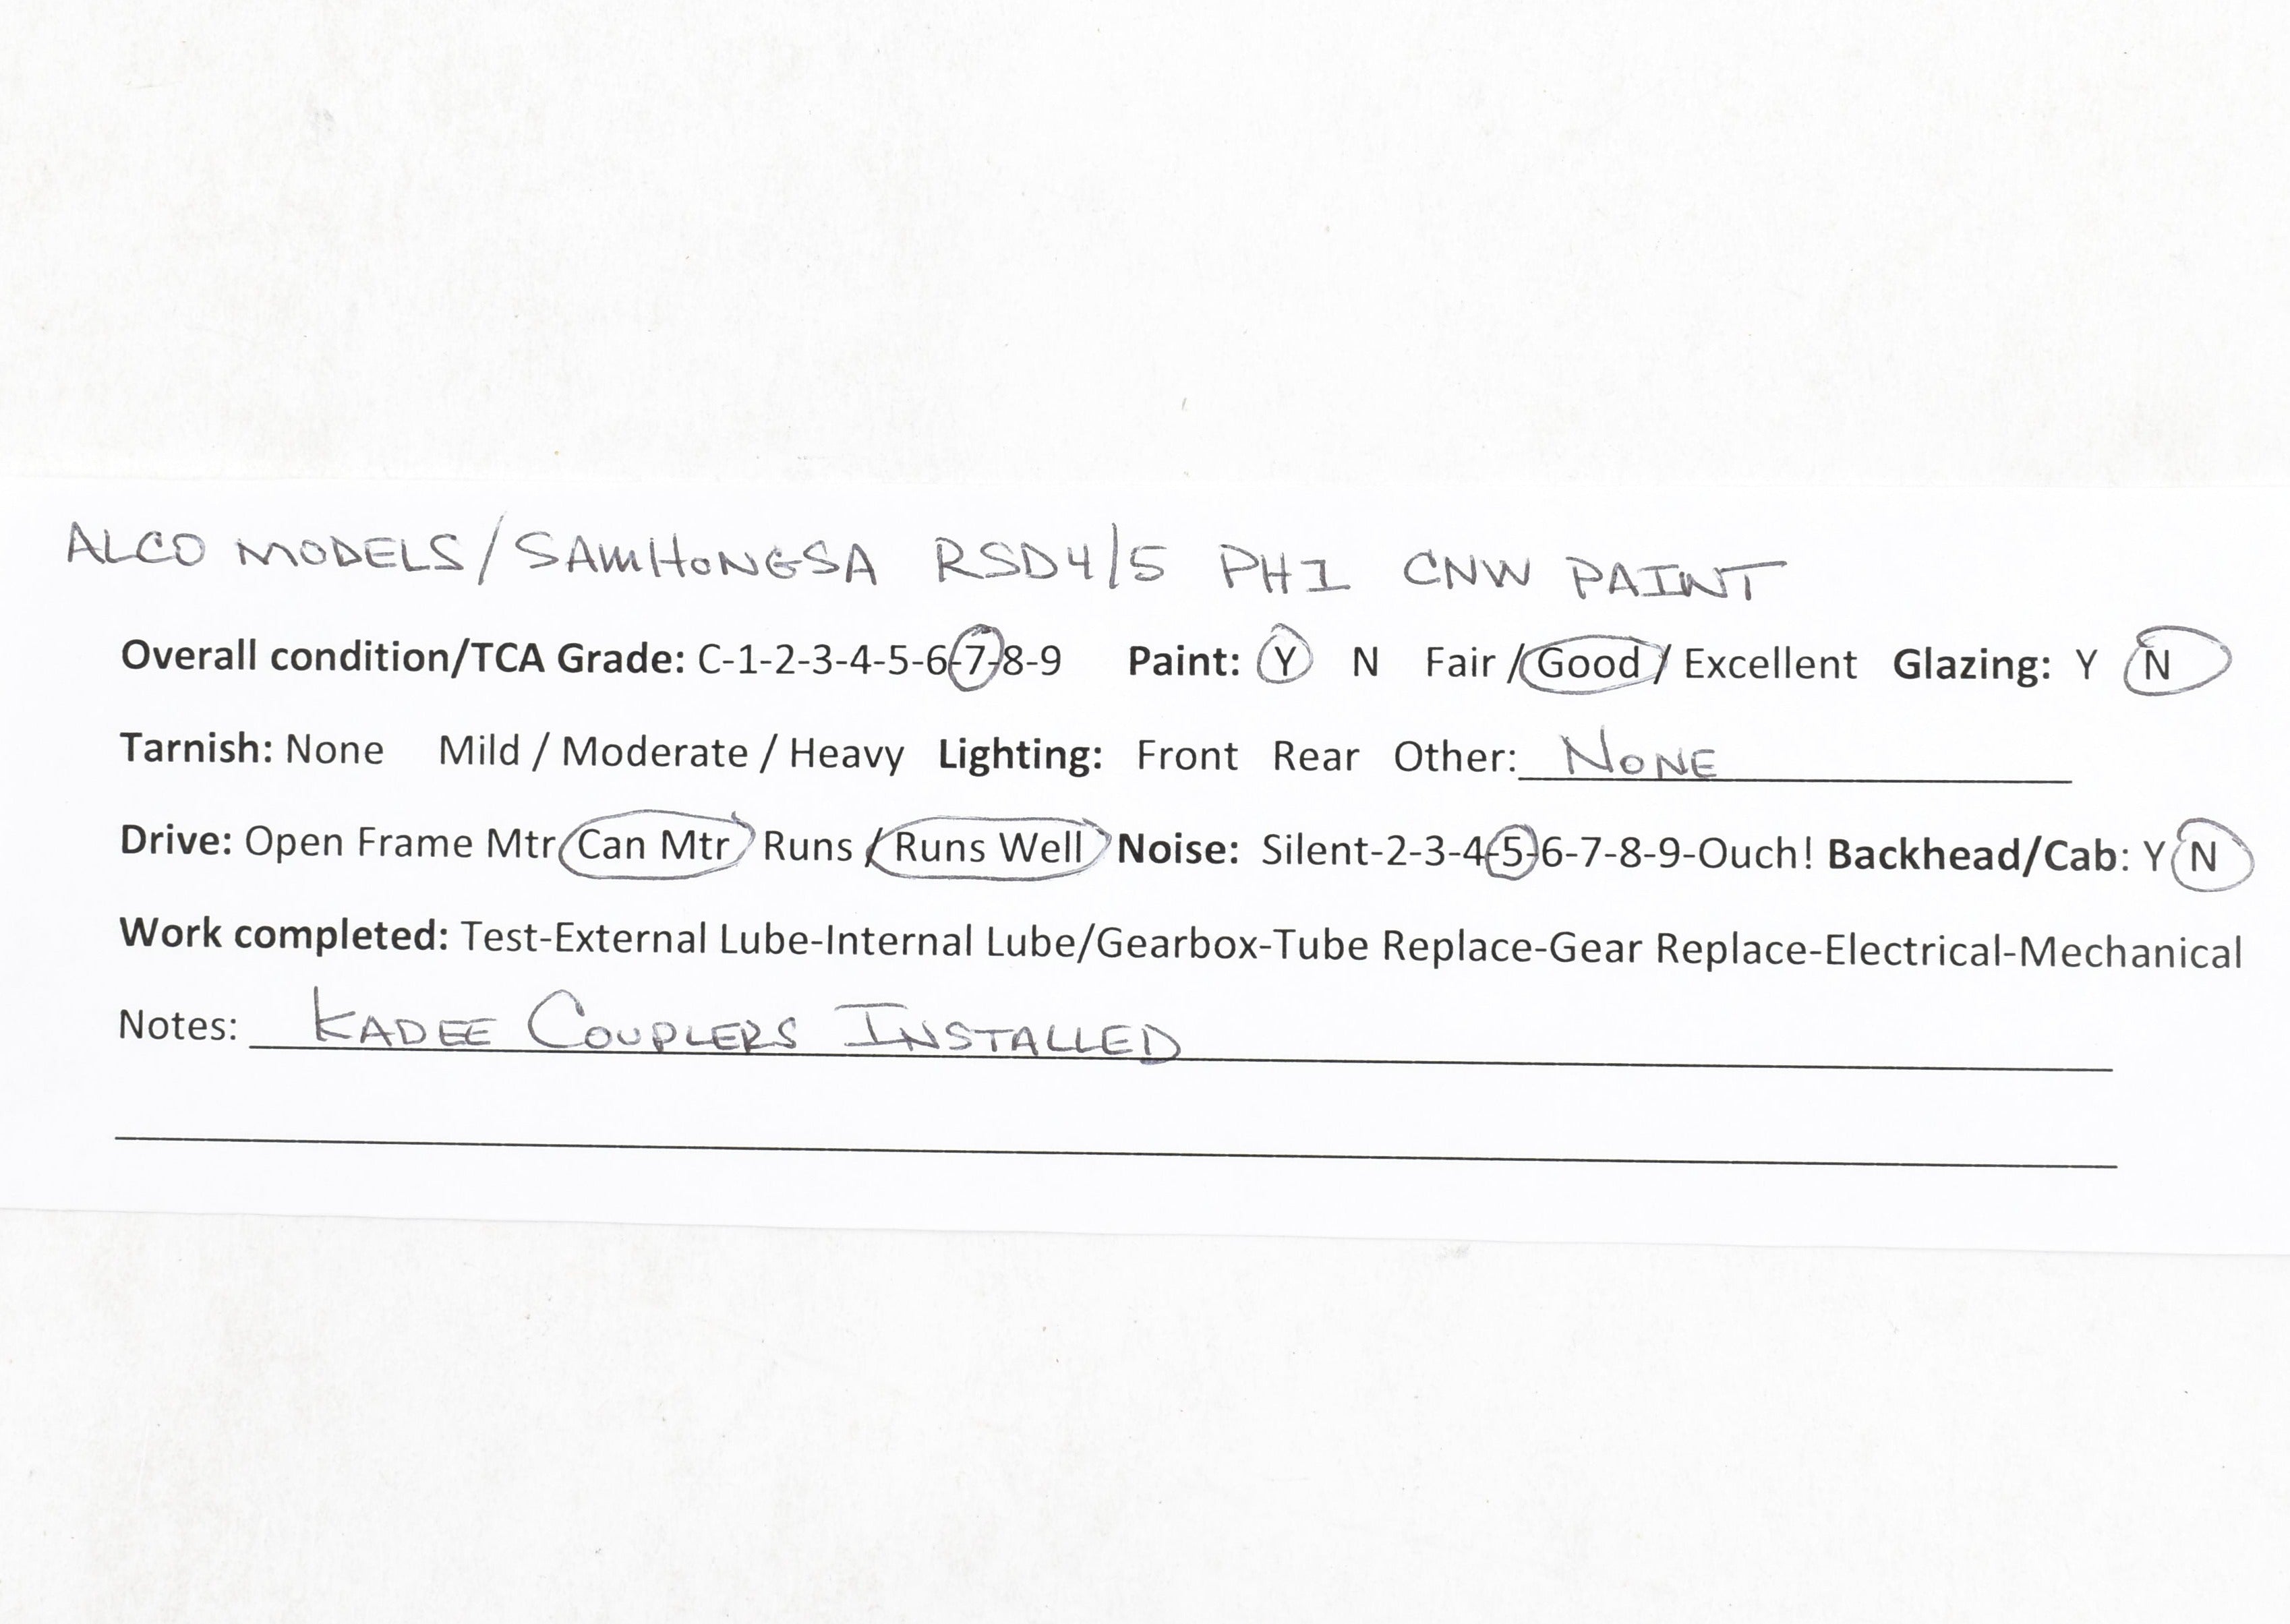 ALCO MODELS/SAMHONGSA RSD4/5 PH1 CNW PAINT
Overall condition/TCA Grade: C-1-2-3-4-5-6-7-8-9 Paint: Y N Fair / Good / Excellent Glazing: Y N
Tarnish: None Mild / Moderate / Heavy Lighting: Front Rear Other: NONE
Drive: Open Frame Mtr Can Mtr Runs / Runs Well Noise: Silent-2-3-4-5-6-7-8-9-Ouch! Backhead/Cab: Y N
Work completed: Test-External Lube-Internal Lube/Gearbox-Tube Replace-Gear Replace-Electrical-Mechanical
Notes: KADEE COUPLERS INSTALLED